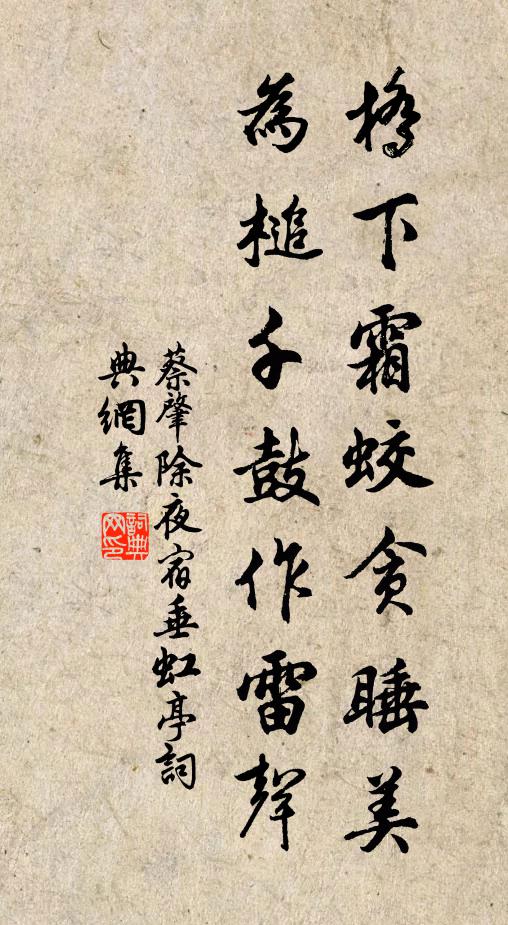 橋下霜蛟貪睡美
為槌千鼓作雷聲
蔡肇除夜宿垂虹亭詞
典網集
詞典網印